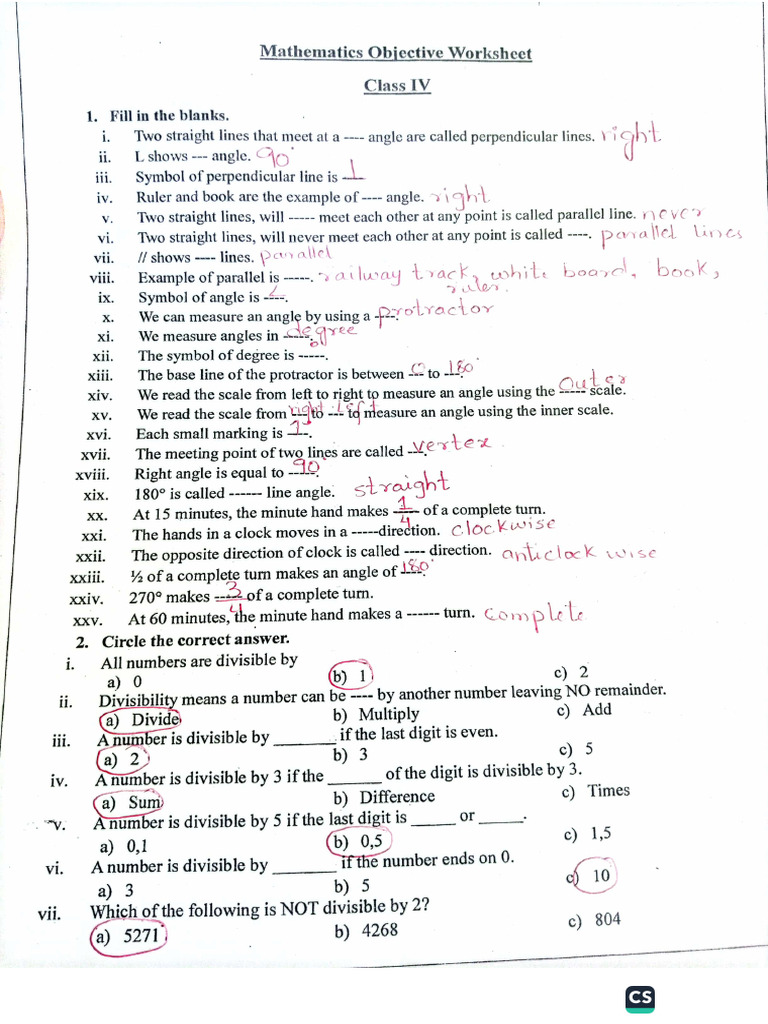 Mathematics Objective Worksheet
Class IV
1. Fill in the blanks.
i. Two straight lines that meet at a ---- angle are called perpendicular lines. right
ii. L shows --- angle. 90°
iii. Symbol of perpendicular line is ⊥
iv. Ruler and book are the example of ---- angle. right
v. Two straight lines, will ----- meet each other at any point is called parallel line. never
vi. Two straight lines, will never meet each other at any point is called ----. parallel lines
vii. // shows ---- lines. parallel
viii. Example of parallel is -----. railway track, white board, book,
ruler.
ix. Symbol of angle is ----. ∠
x. We can measure an angle by using a ----. protractor
xi. We measure angles in -----. degree
xii. The symbol of degree is -----. °
xiii. The base line of the protractor is between --- to ---. 0 180°
xiv. We read the scale from left to right to measure an angle using the ----- scale. outer
xv. We read the scale from ---to --- to measure an angle using the inner scale. right left
xvi. Each small marking is ---. 1°
xvii. The meeting point of two lines are called ---. vertex
xviii. Right angle is equal to -----. 90°
xix. 180° is called ------ line angle. straight
xx. At 15 minutes, the minute hand makes ---- of a complete turn. 1/4
xxi. The hands in a clock moves in a -----direction. clockwise
xxii. The opposite direction of clock is called ---- direction. anticlock wise
xxiii. ½ of a complete turn makes an angle of ----. 180°
xxiv. 270° makes ----- of a complete turn. 3/4
xxv. At 60 minutes, the minute hand makes a ------ turn. complete
2. Circle the correct answer.
i. All numbers are divisible by
a) 0 b) 1 c) 2
ii. Divisibility means a number can be ---- by another number leaving NO remainder.
a) Divide b) Multiply c) Add
iii. A number is divisible by _______ if the last digit is even.
a) 2 b) 3 c) 5
iv. A number is divisible by 3 if the ______ of the digit is divisible by 3.
a) Sum b) Difference c) Times
v. A number is divisible by 5 if the last digit is _____ or _____.
a) 0,1 b) 0,5 c) 1,5
vi. A number is divisible by _______ if the number ends on 0.
a) 3 b) 5 c) 10
vii. Which of the following is NOT divisible by 2?
a) 5271 b) 4268 c) 804
CS